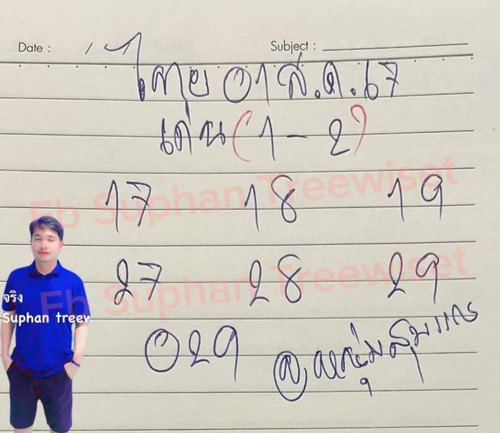 Date : / /
Subject :
ไทย 01 ส.ค. 67
เด่น (1 - 2)
17 18 19
27 28 29
029
Fb Suphan Treewiset
Fb Suphan Treewiset
จริง
Suphan treew